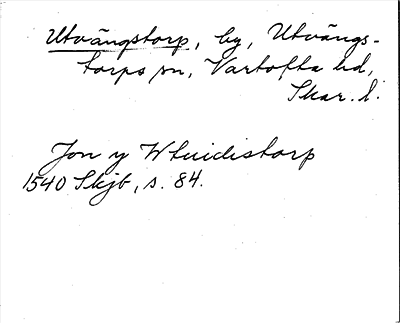 Utvängstorp, by, Utvängs-
torps sn, Vartofta hd,
Skar. l.
Jon y Wtuidistorp
1540 Skjb, s. 84.